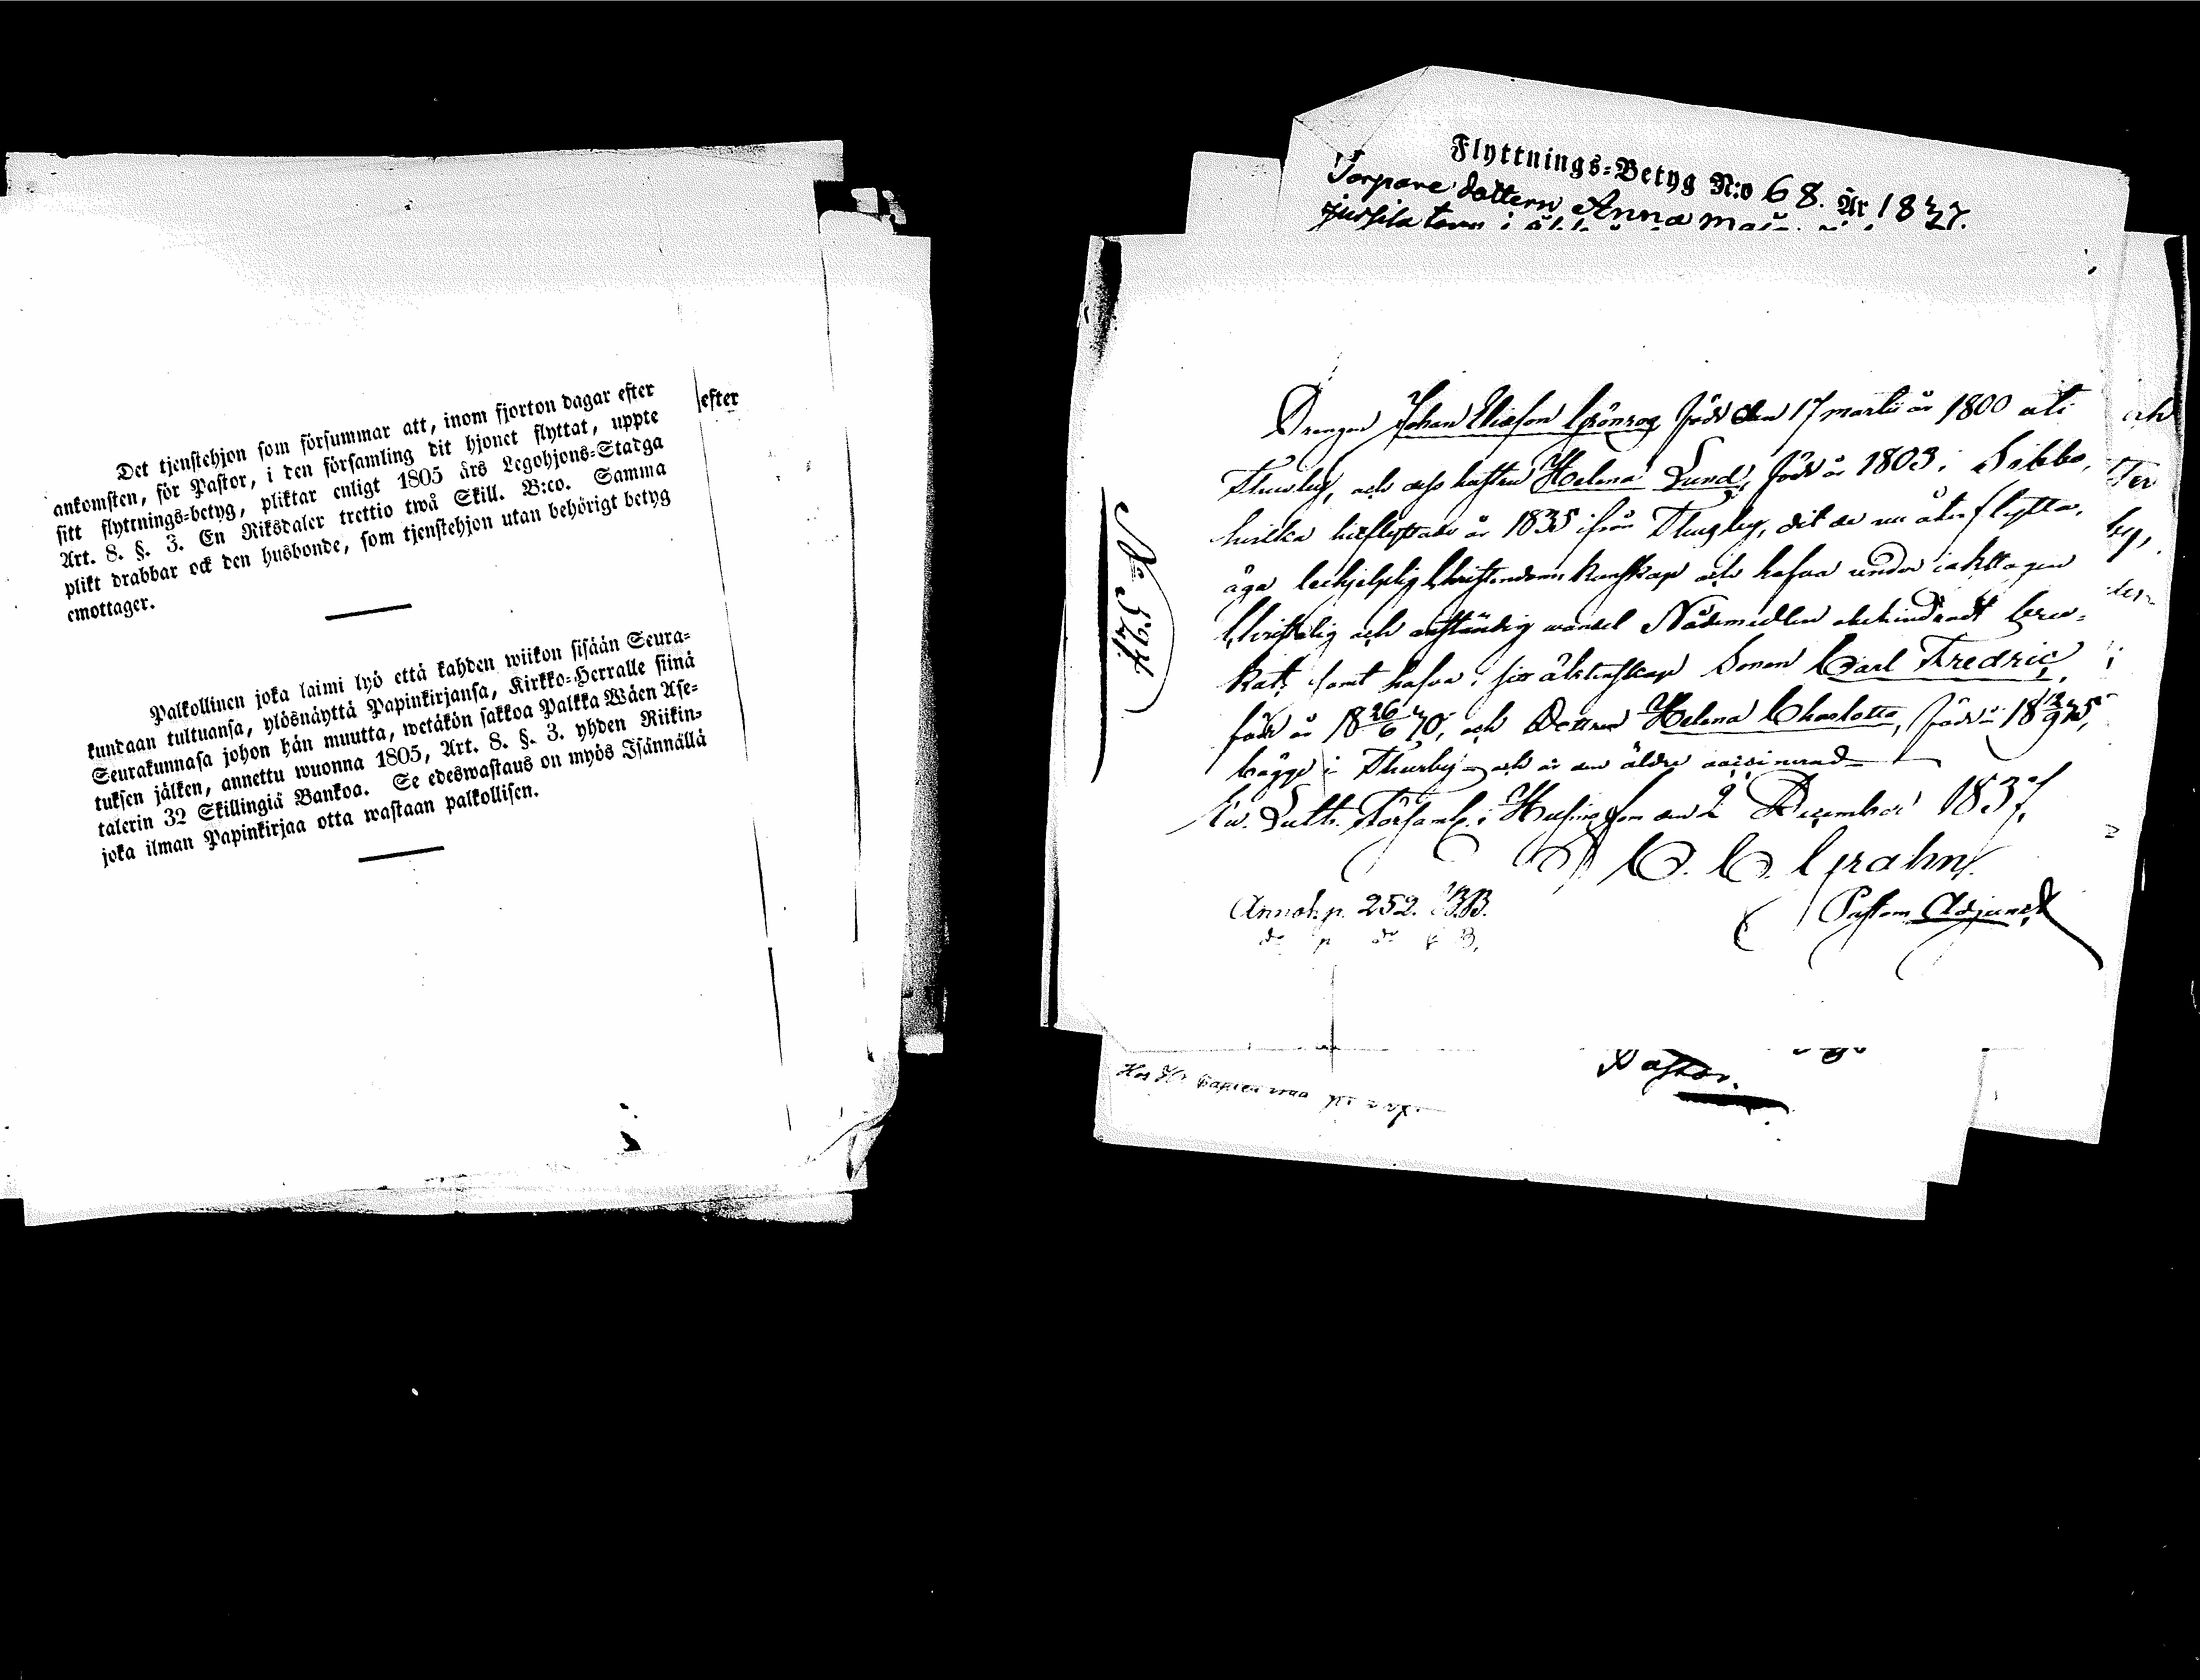 Det tjenstehjon som försummar att, inom fjorton dagar efter
ankomsten, för Pastor, i den församling dit hjonet flyttat, uppte
sitt flyttnings=betyg, pliktar enligt 1805 års Legohjons=Stadga
Art. 8. §. 3. En Riksdaler trettio twå Skill. B:co. Samma
plikt drabbar ock den husbonde, som tjenstehjon utan behörigt betyg
emottager.
Palkollinen joka laimi lyö että kahden wiikon sisään Seura=
kundaan tultuansa, ylösnäyttä Papinkirjansa, Kirkko=Herralle siinä
Seurakunnasa johon hän muutta, wetäkön sakkoa Palkka Wäen Ase=
tuksen jälken, annettu wuonna 1805, Art. 8. §. 3. yhden Riikin=
talerin 32 Skillingiä Bankoa. Se edeswastaus on myös Isännällä
joka ilman Papinkirjaa otta wastaan palkollisen.
efter
Flyttnings=Betyg N:o 68. År 1837.
Torpare dottern Anna
Drengen Johan Eliasson Grönroq född den 17 martii år 1800 uti
Thusby, och hustru Helena Lund, född år 1803 i Sibbo,
hvilka hitflyttade år 1835 ifrån Thusby, dit de nu återflytta,
äga behjelplig Christendoms kunskap och hafva under iakttagen
Christelig och anständig wandel Nådemedlen obehindradt bru=
kat, samt hafva i sitt äktenskap Sonen Carl Fredric,
född år 18 26/6 30, och Dottren Helena Charlotta, född år 18
bägge i Thusby och är den äldre vaccinerad
Ev. Luth. Församl. i Helsingfors den 2 December 1837.
C. C. Grahn.
Pastors Adjunct
Annot. p. 252.
N:o 524.
Pastor.